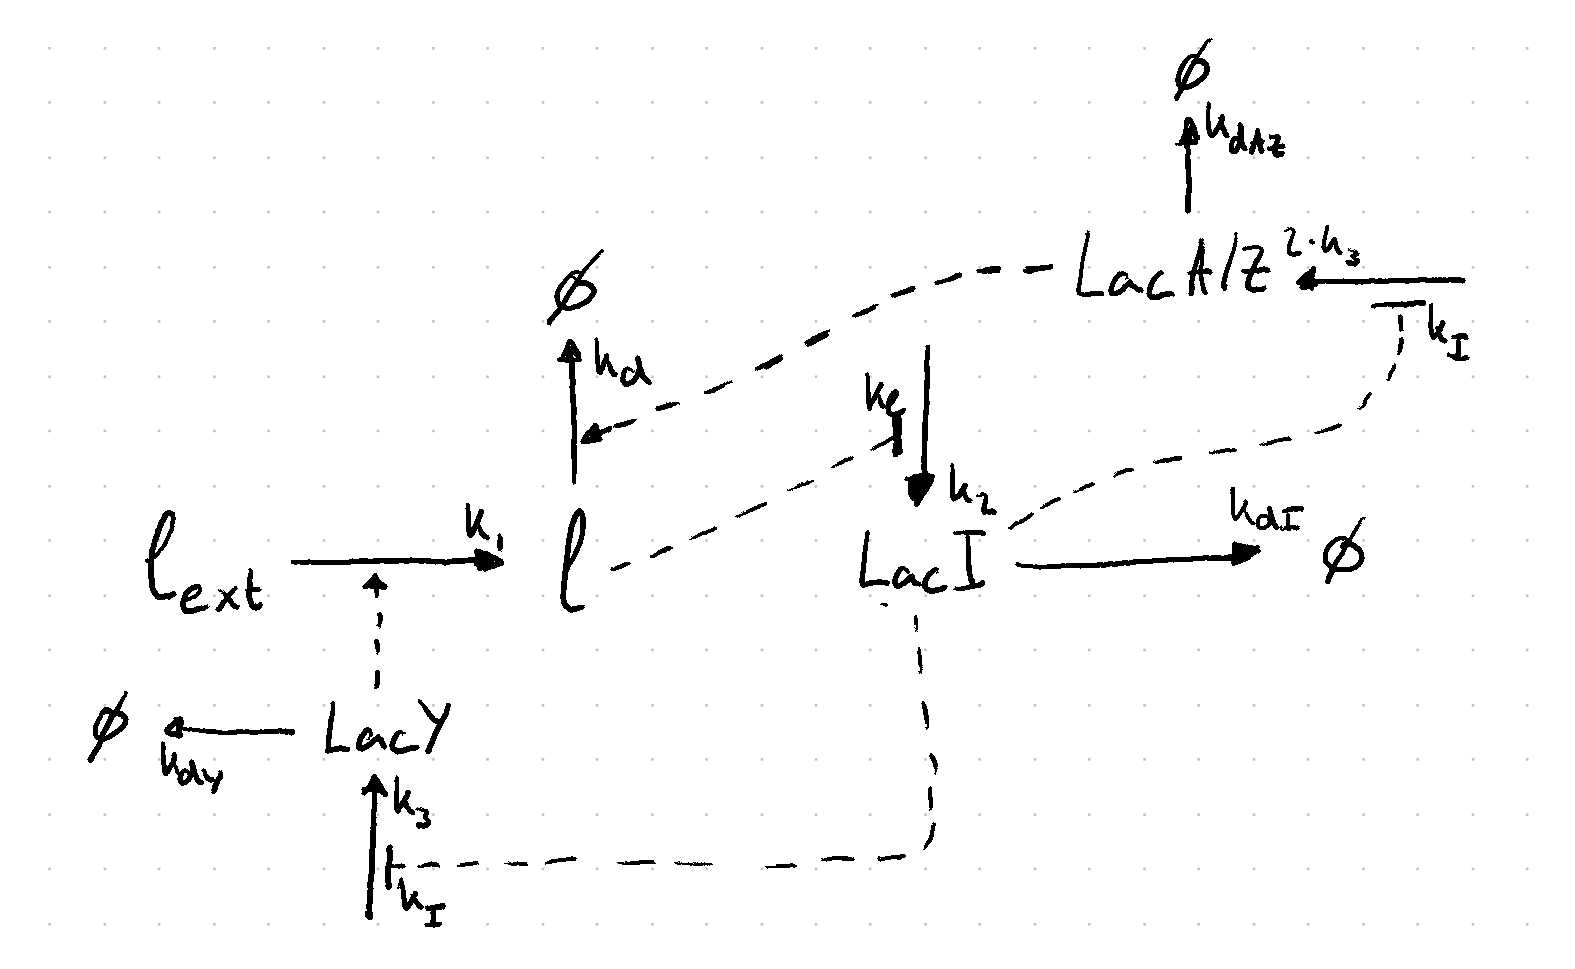 ∅
k_dAZ
LacA/Z
2·k_3
k_I
∅
k_d
k_l
k_2
l_ext
k_1
l
LacI
k_dI
∅
∅
k_dy
LacY
k_3
k_I